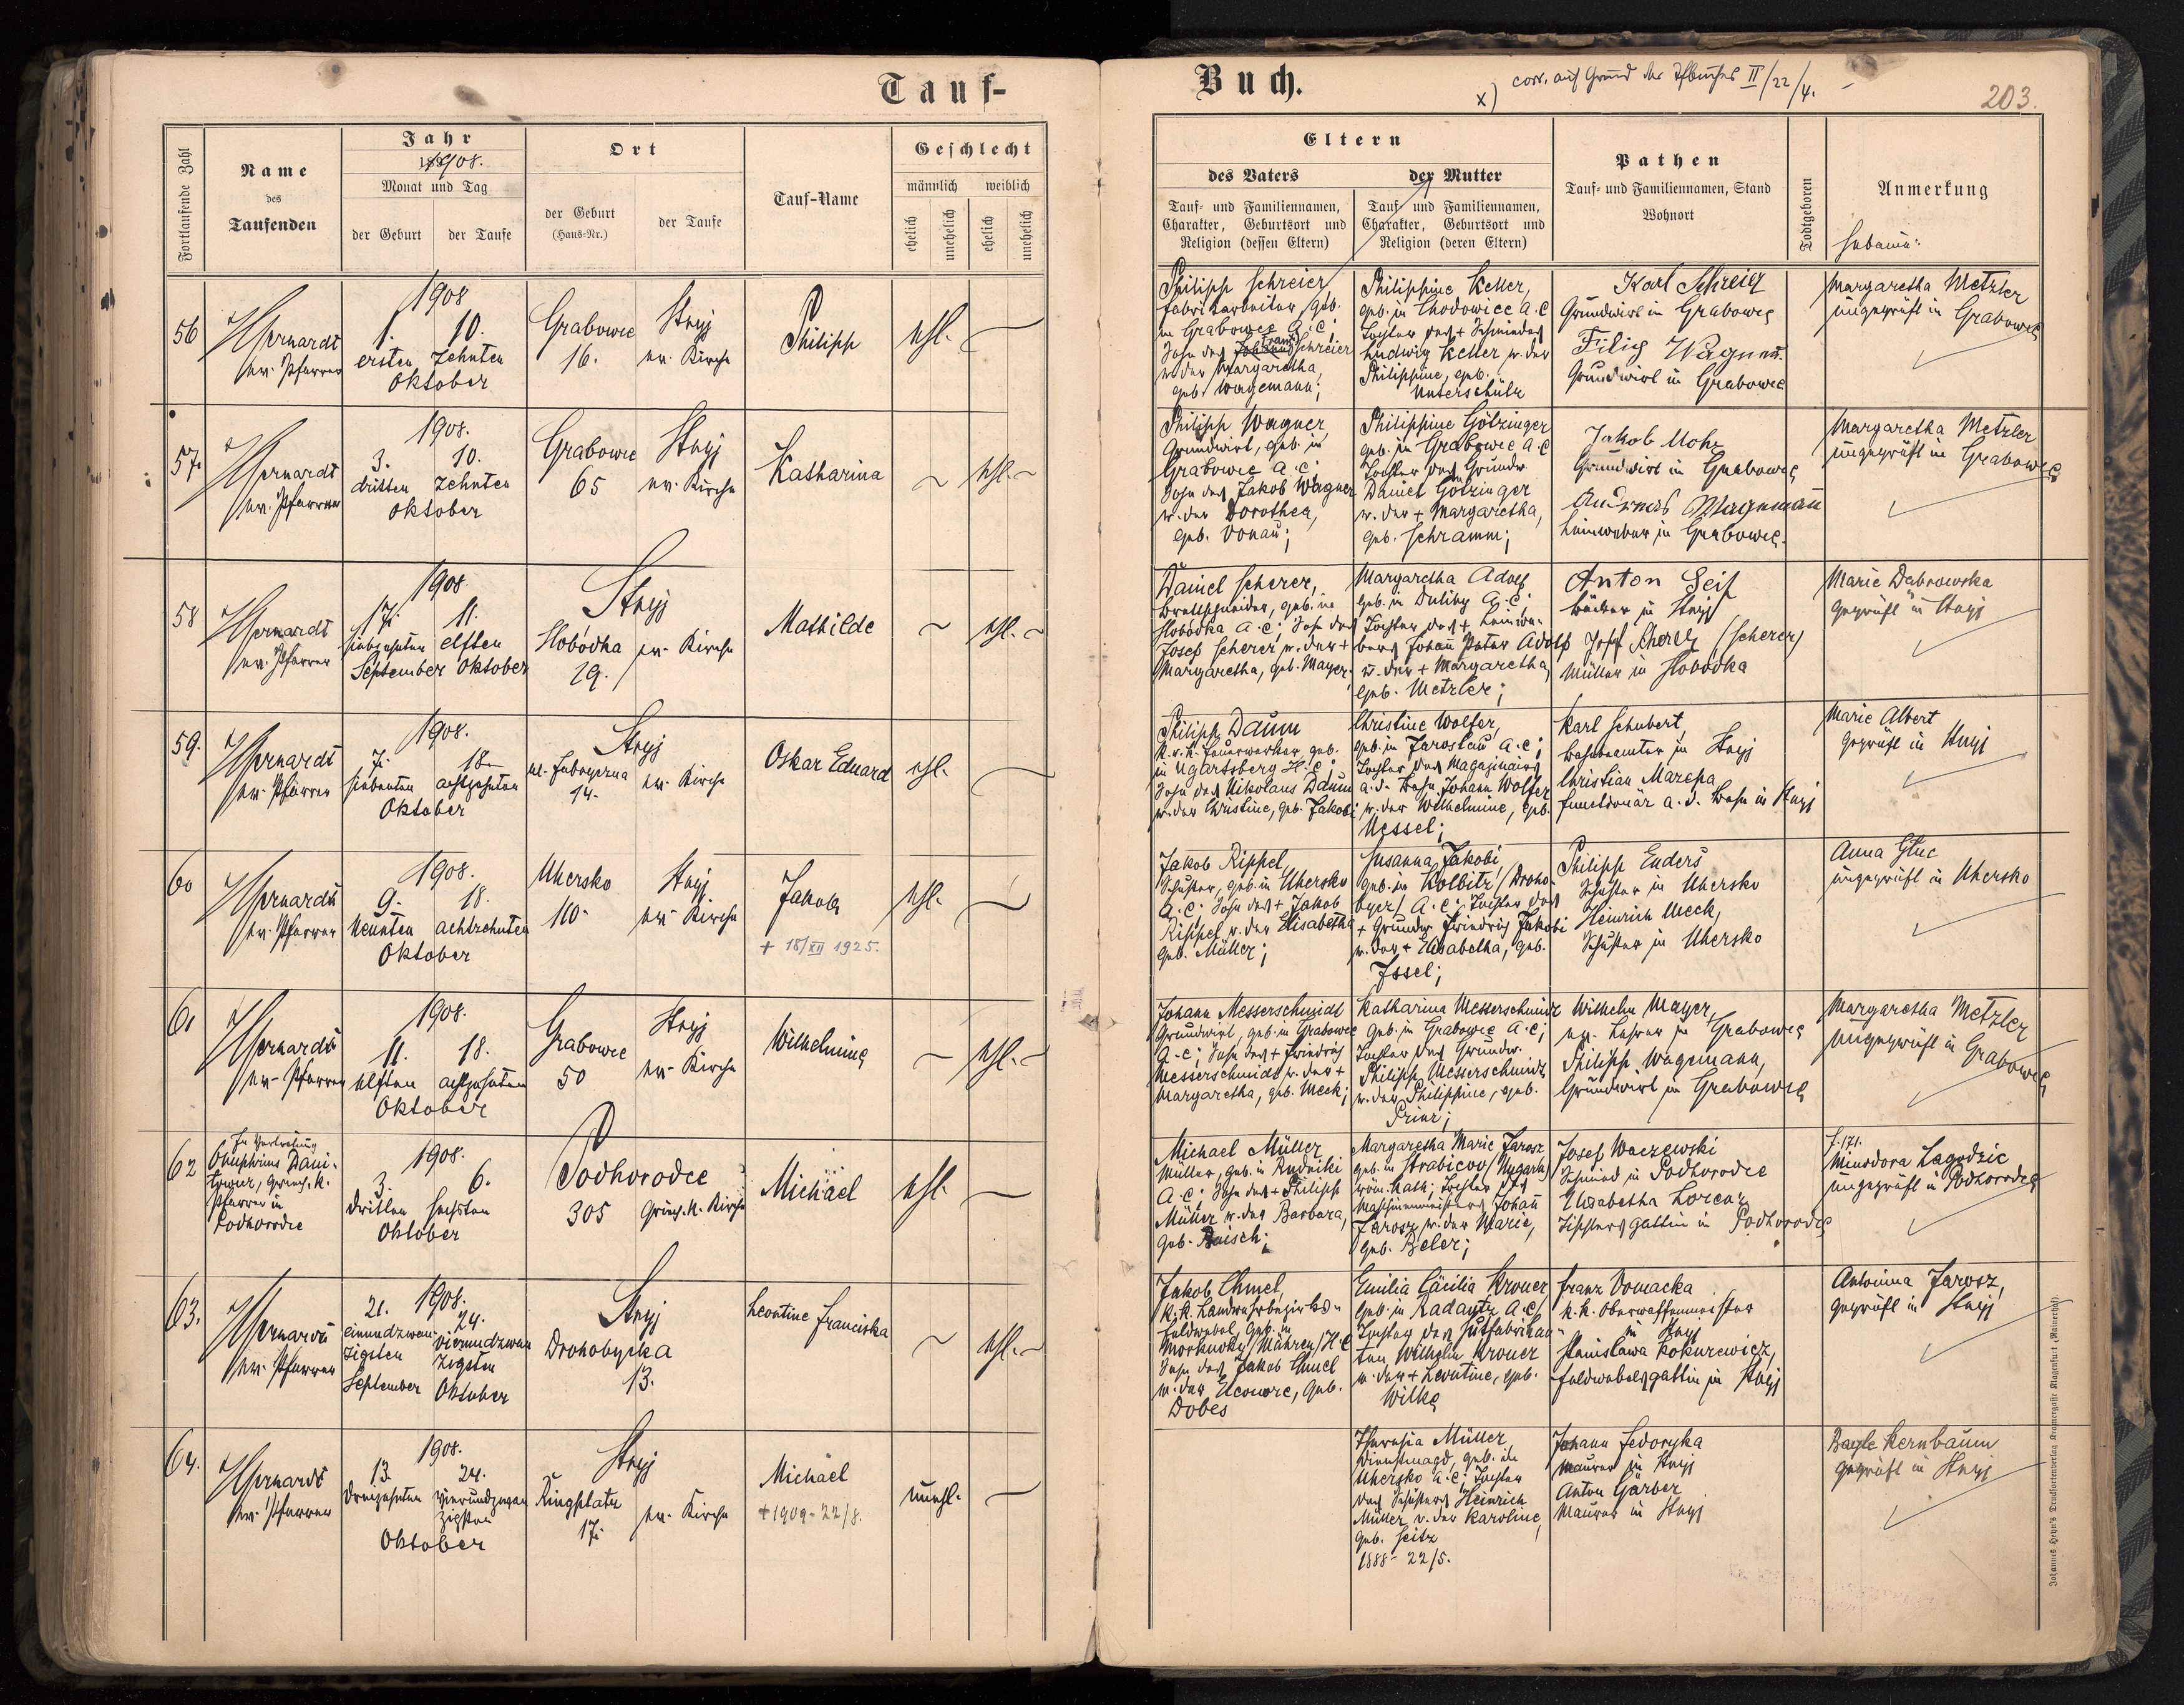 Tauf-
Fortlaufende Zahl
Name
des
Taufenden
Jahr
1908.
Monat und Tag
der Geburt
der Taufe
Ort
der Geburt
(Haus-Nr.)
der Taufe
Tauf-Name
Geschlecht
männlich
weiblich
ehelich
unehelich
ehelich
unehelich
56
ev. Pfarrer
1908
1. 10.
ersten zehnten
Oktober
Grabowce
16.
Stryj
ev. Kirche
Philipp
ehl.
57.
ev. Pfarrer
1908.
3. 10.
dritten zehnten
Oktober
Grabowce
65
Stryj
ev. Kirche
Katharina
ehl.
58
ev. Pfarrer
1908
17. 11.
siebzehnten elften
September Oktober
Stryj
Slobódka
29.
ev. Kirche
Mathilde
ehl.
59.
ev. Pfarrer
1908.
7. 18.
siebenten achtzehnten
Oktober
Stryj
14.
ev. Kirche
Oskar Eduard
ehl.
60
ev. Pfarrer
1908.
9. 18.
neunten achtzehnten
Oktober
Uhersko
110.
Stryj
ev. Kirche
Jakob
+ 18/XII 1925.
ehl.
61
ev. Pfarrer
1908.
11. 18.
elften achtzehnten
Oktober
Grabowce
50
Stryj
ev. Kirche
Wilhelmine
ehl.
62
In Vertretung
Pfarrer in
Podhorodce
1908.
3. 6.
dritten sechsten
Oktober
Podhorodce
305
griech. k. Kirche
Michael
ehl.
63.
ev. Pfarrer
1908.
21. 24.
einundzwan- vierundzwan
zigsten zigsten
September Oktober
Stryj
Drohobycka
13.
Leontine Franciska
ehl.
64.
ev. Pfarrer
1908.
13. 24.
dreizehnten vierundzwan
zigsten
Oktober
Stryj
Ringplatz
17.
ev. Kirche
Michael
+ 1909 - 22/8.
unehl.
Buch.
x) corr. auf Grund des II/22/4.
203.
Eltern
des Vaters
Tauf- und Familiennamen,
Charakter, Geburtsort und
Religion (dessen Eltern)
der Mutter
Tauf- und Familiennamen,
Charakter, Geburtsort und
Religion (deren Eltern)
Pathen
Tauf- und Familiennamen, Stand
Wohnort
Todtgeboren
Anmerkung
Hebamme:
Philipp Schreier,
Fabriksarbeiter, geb.
in Grabowce A.C.;
Sohn des Franz Schreier
u. der Margaretha,
geb. Wagemann;
Philippine Keller,
geb. in Chodowice A.C
Tochter des + Schmiedes
Ludwig Keller u. der
Philippine, geb.
Unterschütz
Karl Schreier
Grundwirt in Grabowce
Filip Wagner
Grundwirt in Grabowce
Margaretha Metzler
ungeprüft in Grabowce
Philipp Wagner
Grundwirt, geb. in
Grabowce A.C.;
Sohn des Jakob Wagner
u. der Dorothea,
geb. Donau;
Philippine Götzinger
geb. in Grabowce A.C
Tochter des Grundw.
Daniel Götzinger
u. der + Margaretha,
geb. Schramm;
Jakob Mohr
Grundwirt in Grabowce
Andreas Wagemann
Leinweber in Grabowce.
Margaretha Metzler
ungeprüft in Grabowce
Daniel Scherer,
Brettschneider, geb. in
Slobódka A.C.; Sohn des
Josef Scherer u. der +
Margaretha, geb. Mayer.
Margaretha Adolf
geb. in Duliby A.C.;
Tochter des + Leinwe-
bers Johann Peter Adolf
u. der + Margaretha,
geb. Metzler;
Anton Seif
Bäcker in Stryj
Josef Scherer (Scherer)
Müller in Slobódka
Marie Dabrowska
geprüft in Stryj
Philipp Daum
k.u.k. Feuerwerker, geb.
in Ugartsberg H.C.;
Sohn des Nikolaus Daum
u. der Christine, geb. Jakobi
Christine Wolfer,
geb. in Jaroslau A.C.;
Tochter des Magazineurs
a.d. Bahn Johann Wolfer
u. der Wilhelmine, geb.
Messel;
Karl Schubert,
Bahnbeamter in Stryj
Christian Marepa
Functionär a.d. Bahn in Stryj
Marie Albert
geprüft in Stryj
Jakob Rippel,
Schuster, geb. in Uhersko
A.C.; Sohn des + Jakob
Rippel u. der Elisabetha
geb. Müller;
Susanna Jakobi
geb. in Kolbitz/Droho-
bycz/ A.C.; Tochter des
+ Grundw. Friedrich Jakobi
u. der + Elisabetha, geb.
Issel;
Philipp Enders
Schuster in Uhersko
Heinrich Meck,
Schuster in Uhersko
Anna Gluc
ungeprüft in Uhersko
Johann Messerschmidt
Grundwirt, geb. in Grabowce
A.C.; Sohn des + Friedrich
Messerschmidt u. der +
Margaretha, geb. Meck;
Katharina Messerschmidt
geb. in Grabowce A.C.;
Tochter des Grundw.
Philipp Messerschmidt
u. der Philippine, geb.
Prinz;
Wilhelm Mayer,
ev. Lehrer in Grabowce
Philipp Wagemann,
Grundwirt in Grabowce
Margaretha Metzler
ungeprüft in Grabowce
Michael Müller
Müller, geb. in Rudniki
A.C.; Sohn des + Philipp
Müller u. der Barbara,
geb. Baisch;
Margaretha Marie Jarosz
geb. in Strabicov/Ungarn/
röm. kath.; Tochter des
Maschinenmeisters Johann
Jarosz u. der Marie,
geb. Beler;
Josef Waczewski
Schmied in Podhorodce
Elisabetha Lorenz
Tischlers gattin in Podhorodce
J. 171.
Minodora Lagodzic
ungeprüft in Podhorodce
Jakob Chmel,
k.k. Landwehrbezirks-
feldwebel, geb. in
Morkuvky/Mähren/ H.C
Sohn des Jakob Chmel
u. der Eleonore, geb.
Dobes
Emilia Cäcilia Kroner
geb. in Radautz A.C;
Tochter des Hutfabrikan-
ten Wilhelm Kroner
u. der + Leontine, geb.
Wilke
Franz Domacka
k.k. Oberwaffenmeister
in Stryj
Stanislawa Kokurewicz,
Feldwebelsgattin in Stryj
Antonina Jarosz,
geprüft in Stryj
Theresia Müller
Dienstmagd, geb. in
Uhersko A.C.; Tochter
des Schusters Heinrich
Müller u. der Karoline,
geb. Seitz
1888 - 22/5.
Johann Fedoryka
Maurer in Stryj
Anton Gärber
Maurer in Stryj
Bayle Kernbaum
geprüft in Stryj
Johannes Heyn's Drucksortenverlag Kramergasse Klagenfurt (Rainerhof).